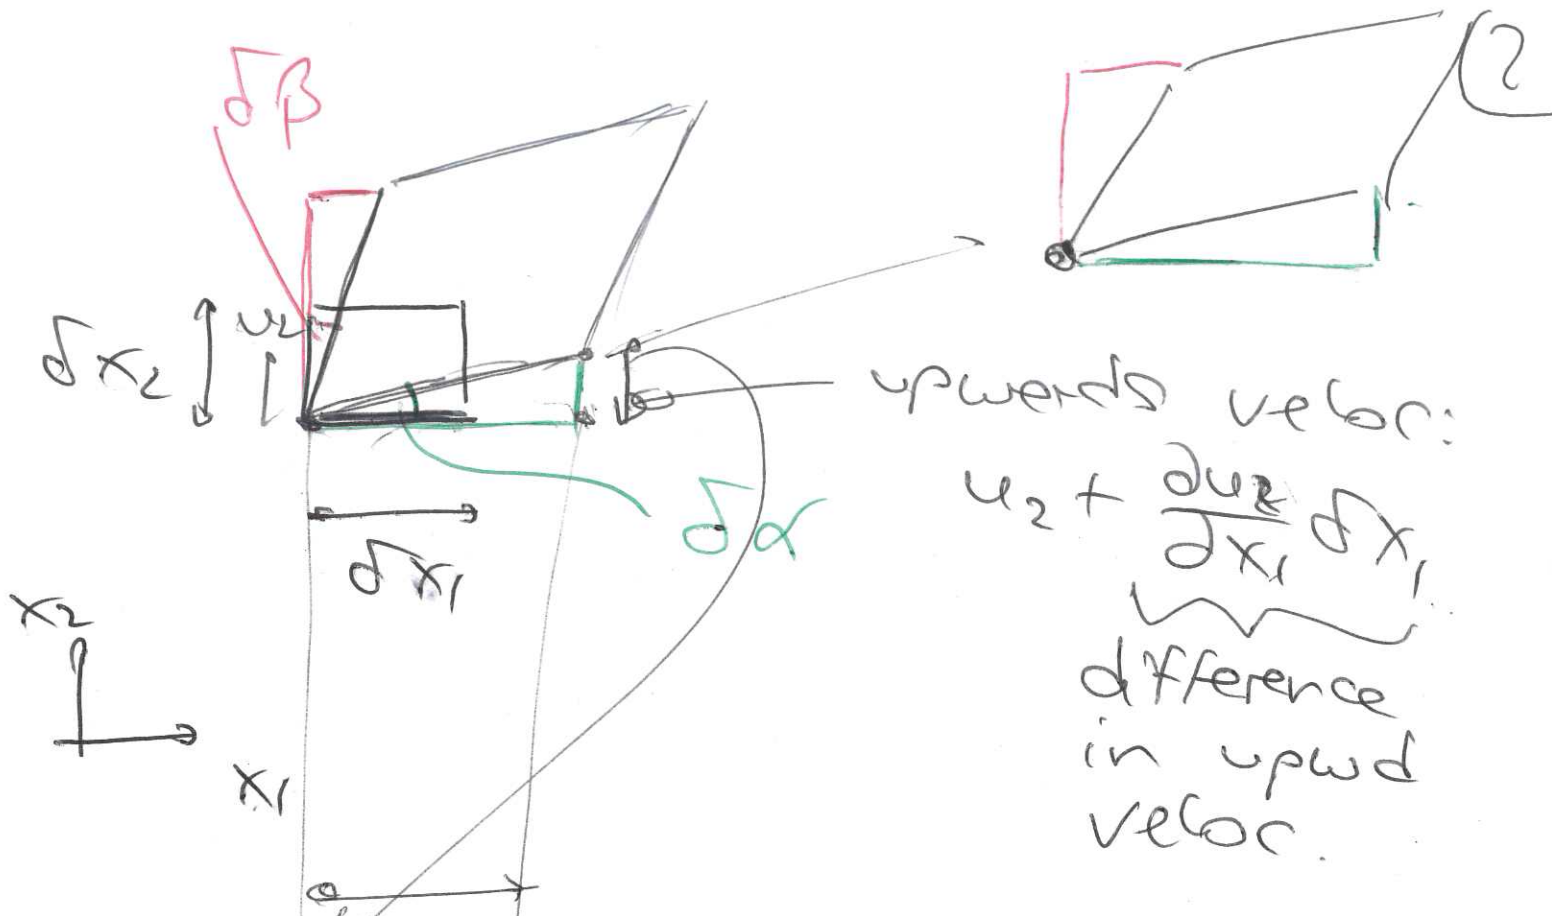 δβ
2
δx₂
u₂
upwards veloc:
u₂ + ∂u₂/∂x₁ δx₁
δα
δx₁
difference
in upwd
veloc.
x₂
x₁